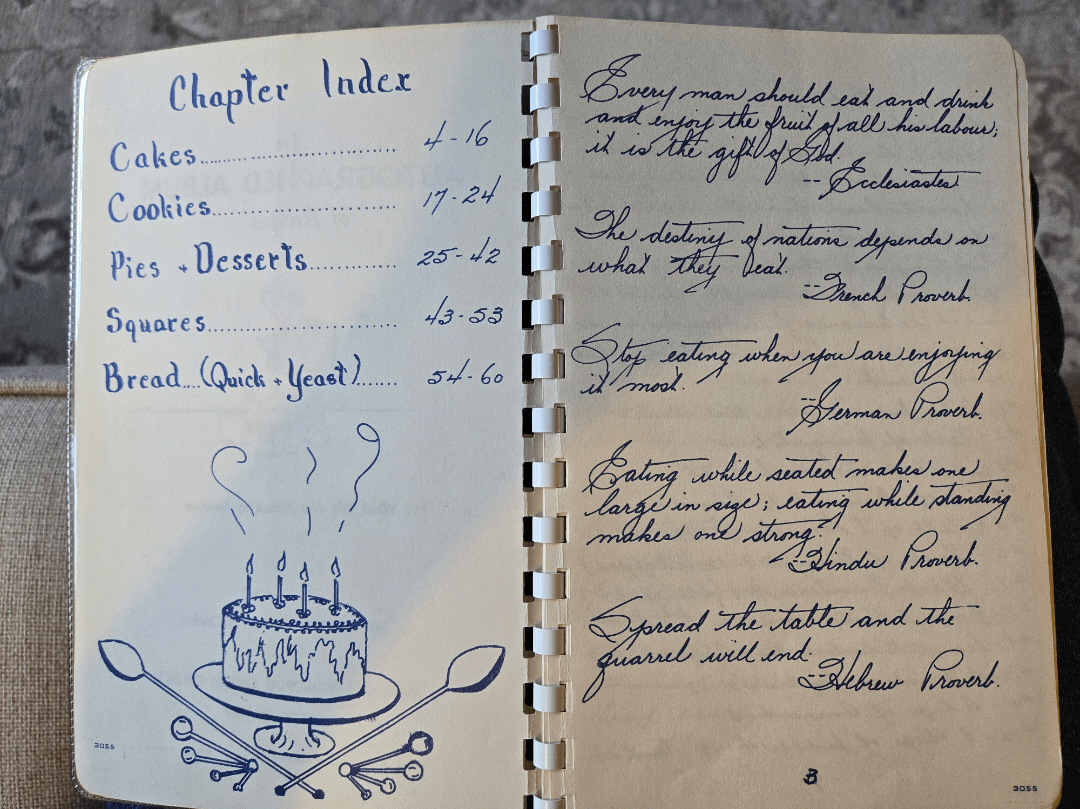 Chapter Index
Cakes................................ 4-16
Cookies............................. 17-24
Pies + Desserts............... 25-42
Squares............................. 43-53
Bread....(Quick + Yeast)....... 54-60
3055
Every man should eat and drink
and enjoy the fruit of all his labour;
it is the gift of God.
-- Ecclesiastes
The destiny of nations depends on
what they eat.
-- French Proverb.
Stop eating when you are enjoying
it most.
-- German Proverb.
Eating while seated makes one
large in size; eating while standing
makes one strong.
-- Hindu Proverb.
Spread the table and the
quarrel will end.
-- Hebrew Proverb.
3
3055